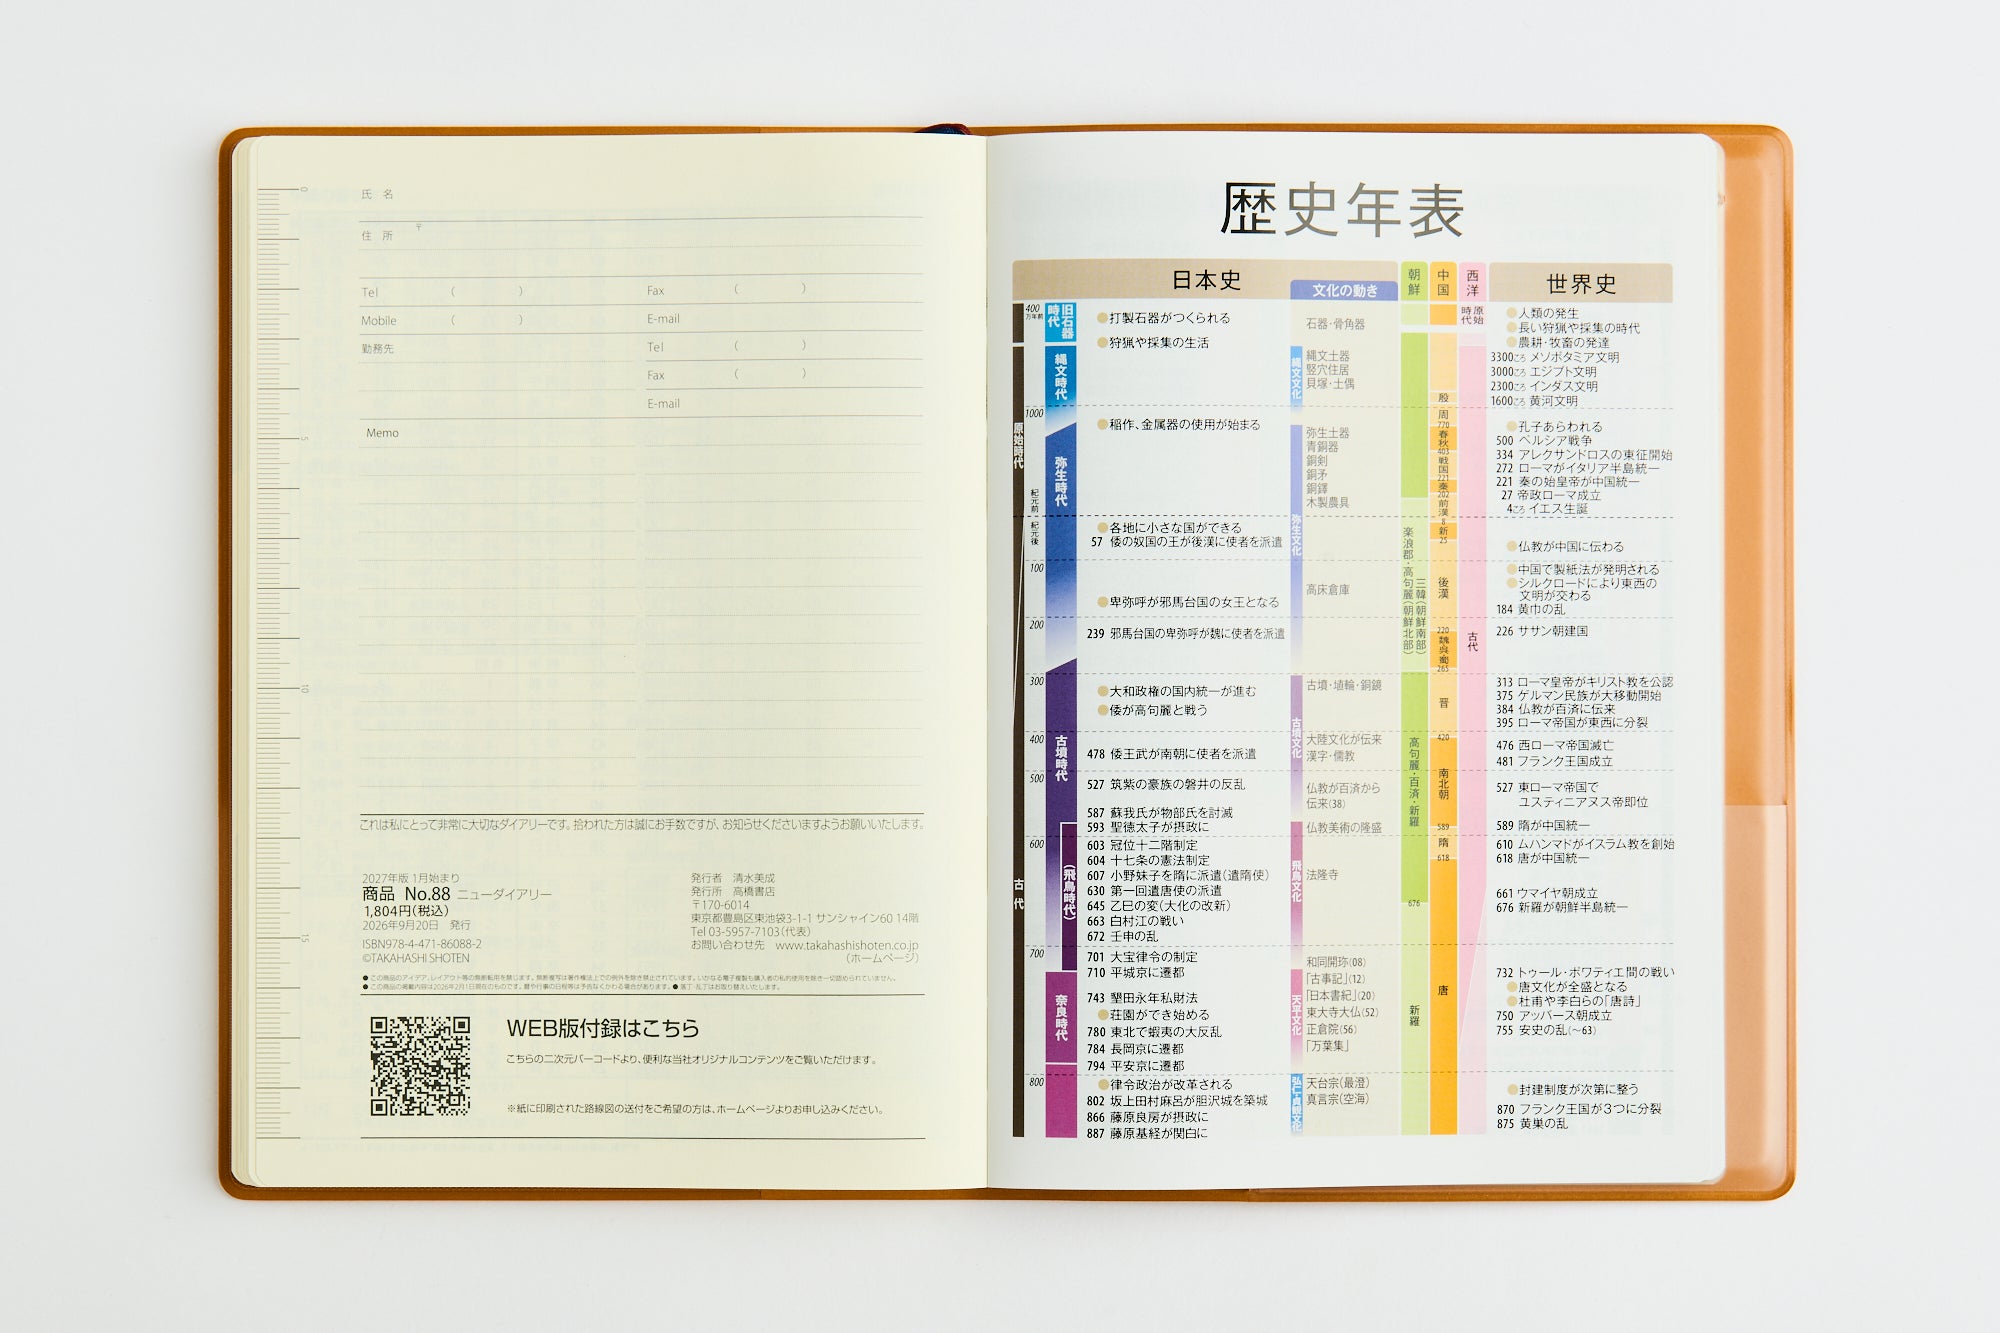 氏 名
〒
住 所
Tel ( ) Fax ( )
Mobile ( ) E-mail
勤務先 Tel ( )
Fax ( )
E-mail
Memo
0
5
10
15
これは私にとって非常に大切なダイアリーです。拾われた方は誠にお手数ですが、お知らせくださいますようお願いいたします。
2027年版 1月始まり
商品 No.88 ニューダイアリー
1,804円(税込)
2026年9月20日 発行
ISBN978-4-471-86088-2
©TAKAHASHI SHOTEN
発行者 清水美成
発行所 高橋書店
〒170-6014
東京都豊島区東池袋3-1-1 サンシャイン60 14階
Tel 03-5957-7103(代表)
お問い合わせ先 www.takahashishoten.co.jp
(ホームページ)
●この商品のアイデア、レイアウト等の無断転用を禁じます。無断複写は著作権法上での例外を除き禁止されています。いかなる電子複製も購入者の私的使用を除き一切認められていません。
●この商品の掲載内容は2026年2月1日現在のものです。暦や行事の日程等は予告なくかわる場合があります。●落丁・乱丁はお取り替えいたします。
WEB版付録はこちら
こちらの二次元バーコードより、便利な当社オリジナルコンテンツをご覧いただけます。
※紙に印刷された路線図の送付をご希望の方は、ホームページよりお申し込みください。
歴史年表
日本史
文化の動き
朝鮮
中国
西洋
世界史
400万年前
1000
紀元前
紀元後
100
200
300
400
500
600
700
800
原始時代
古代
旧石器時代
縄文時代
弥生時代
古墳時代
(飛鳥時代)
奈良時代
●打製石器がつくられる
●狩猟や採集の生活
●稲作、金属器の使用が始まる
●各地に小さな国ができる
57 倭の奴国の王が後漢に使者を派遣
●卑弥呼が邪馬台国の女王となる
239 邪馬台国の卑弥呼が魏に使者を派遣
●大和政権の国内統一が進む
●倭が高句麗と戦う
478 倭王武が南朝に使者を派遣
527 筑紫の豪族の磐井の反乱
587 蘇我氏が物部氏を討滅
593 聖徳太子が摂政に
603 冠位十二階制定
604 十七条の憲法制定
607 小野妹子を隋に派遣(遣隋使)
630 第一回遣唐使の派遣
645 乙巳の変(大化の改新)
663 白村江の戦い
672 壬申の乱
701 大宝律令の制定
710 平城京に遷都
743 墾田永年私財法
●荘園ができ始める
780 東北で蝦夷の大反乱
784 長岡京に遷都
794 平安京に遷都
●律令政治が改革される
802 坂上田村麻呂が胆沢城を築城
866 藤原良房が摂政に
887 藤原基経が関白に
縄文文化
弥生文化
古墳文化
飛鳥文化
天平文化
弘仁・貞観文化
石器・骨角器
縄文土器
竪穴住居
貝塚・土偶
弥生土器
青銅器
銅剣
銅矛
銅鐸
木製農具
高床倉庫
古墳・埴輪・銅鏡
大陸文化が伝来
漢字・儒教
仏教が百済から
伝来(38)
仏教美術の隆盛
法隆寺
和同開珎(08)
「古事記」(12)
「日本書紀」(20)
東大寺大仏(52)
正倉院(56)
「万葉集」
天台宗(最澄)
真言宗(空海)
楽浪郡・高句麗(朝鮮北部)
三韓(朝鮮南部)
高句麗・百済・新羅
676
新羅
殷
周
770
春秋
403
戦国
221
秦
202
前漢
8
新
25
後漢
220
魏・呉・蜀
265
晋
420
南北朝
589
隋
618
唐
原始時代
古代
●人類の発生
●長い狩猟や採集の時代
●農耕・牧畜の発達
3300ころ メソポタミア文明
3000ころ エジプト文明
2300ころ インダス文明
1600ころ 黄河文明
●孔子あらわれる
500 ペルシア戦争
334 アレクサンドロスの東征開始
272 ローマがイタリア半島統一
221 秦の始皇帝が中国統一
27 帝政ローマ成立
4ころ イエス生誕
●仏教が中国に伝わる
●中国で製紙法が発明される
●シルクロードにより東西の
文明が交わる
184 黄巾の乱
226 ササン朝建国
313 ローマ皇帝がキリスト教を公認
375 ゲルマン民族が大移動開始
384 仏教が百済に伝来
395 ローマ帝国が東西に分裂
476 西ローマ帝国滅亡
481 フランク王国成立
527 東ローマ帝国で
ユスティニアヌス帝即位
589 隋が中国統一
610 ムハンマドがイスラム教を創始
618 唐が中国統一
661 ウマイヤ朝成立
676 新羅が朝鮮半島統一
732 トゥール・ポワティエ間の戦い
●唐文化が全盛となる
●杜甫や李白らの「唐詩」
750 アッバース朝成立
755 安史の乱(〜63)
●封建制度が次第に整う
870 フランク王国が3つに分裂
875 黄巣の乱